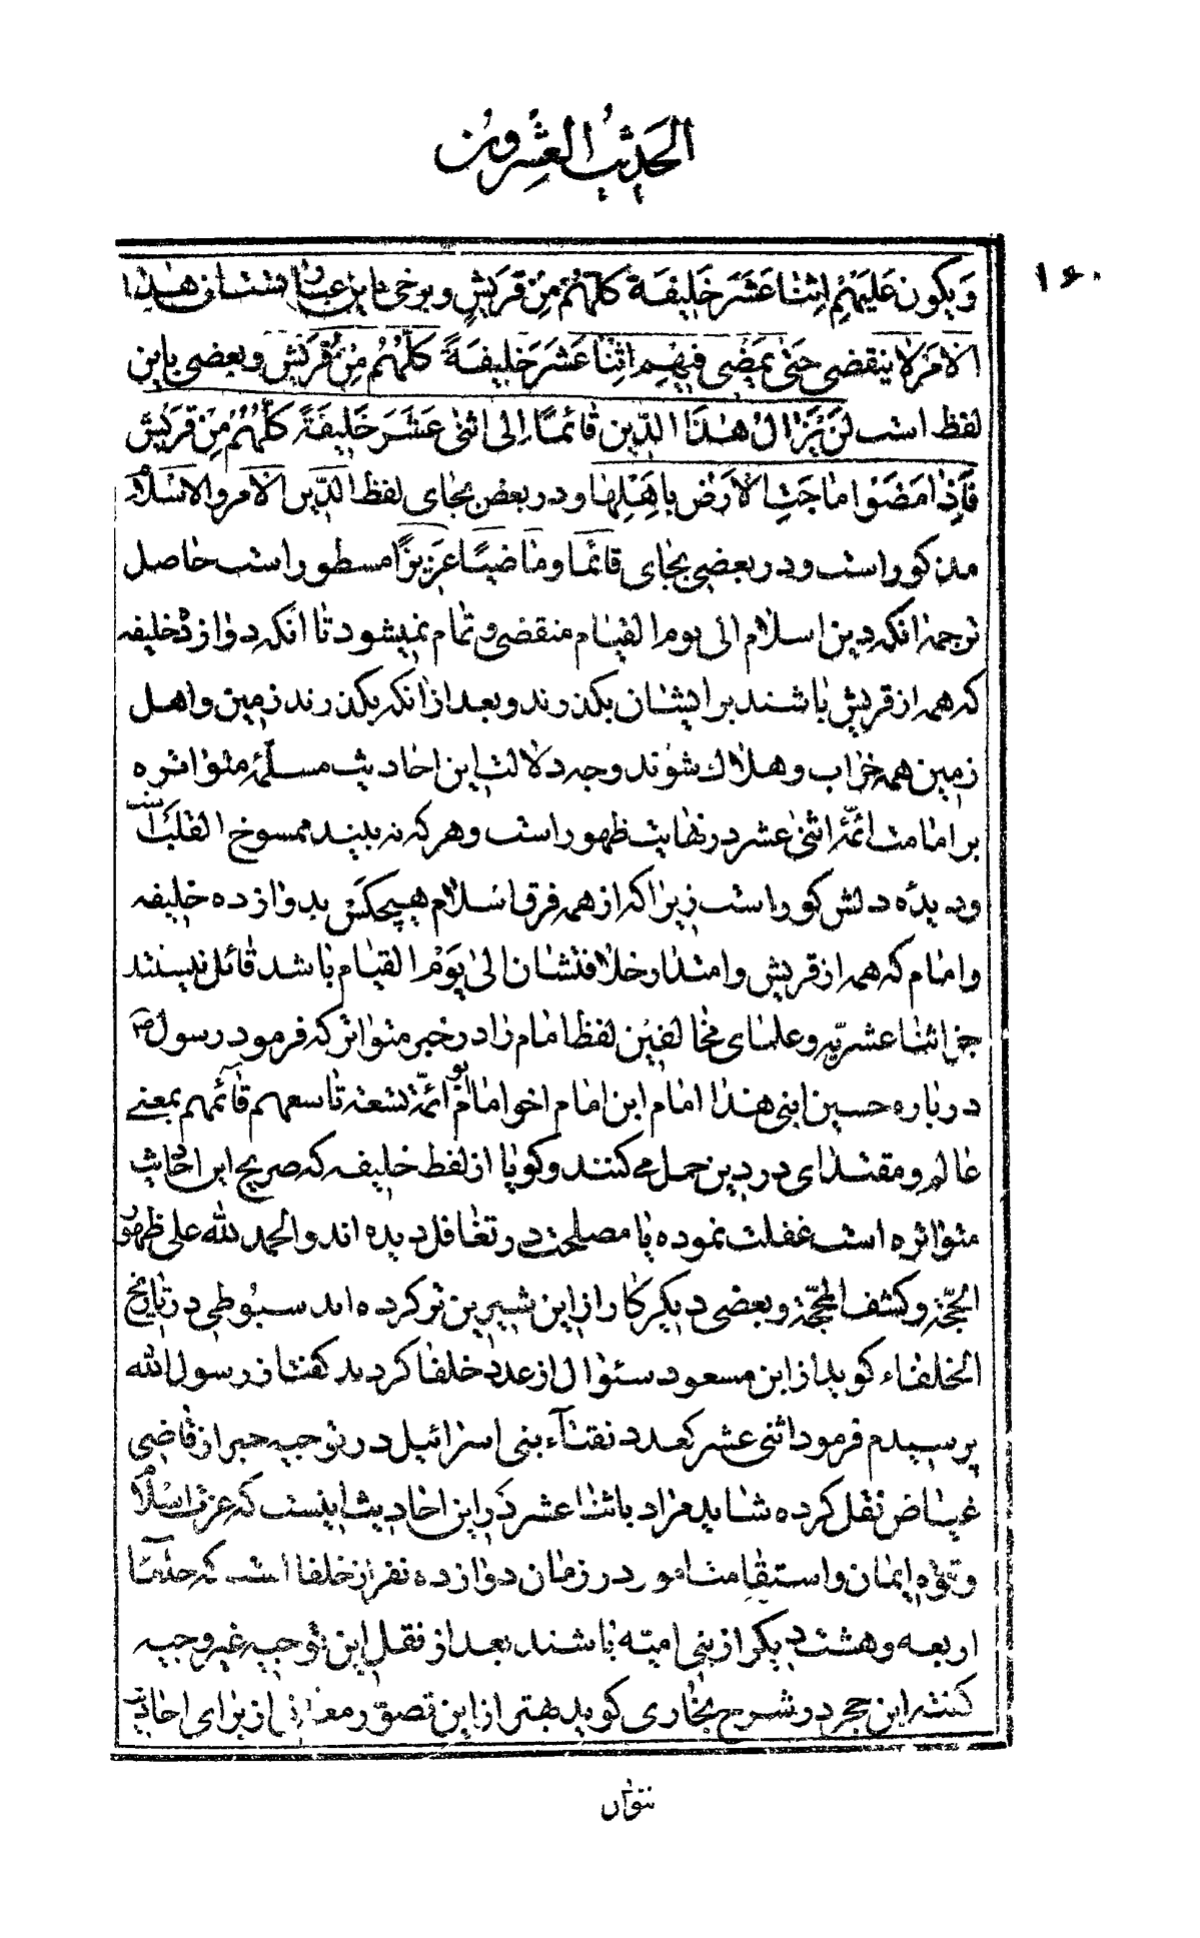 الحدیث العشرون
۱۶۰
وَیکون عَلَیهِم اِثنا عَشَرَ خَلیفَة کلّهُم مِن قُرَیشٍ و برخی باین عبارتست ان هذا
الاَمرَ لا ینقضی حَتیّ یَمضِی فیهِم اِثنا عَشَرَ خَلیفَةً کلّهُم مِن قُرَیش و بعضی باین
لفظ است لَن یَزالَ هذَا الدّین قائمًا اِلی اثنی عَشَرَ خَلیفَةً کلّهُم مِن قرَیش
فَاِذا مَضَوا ماجَتِ الاَرَضُ باَهلِها و در بعض بجای لفظ الدّین الامر و الاسلام
مذکور است و در بعضی بجای قائما و ماضیًا عَزیزًا مسطور است حاصل
ترجمه انکه دین اسلام الی یوم القیام منقضی و تمام نمیشود تا انکه دوازده خلیفه
که همه از قریش باشند بر ایشان بکذرند و بعد از انکه بکذرند زمین و اهل
زمین همه خراب و هلاک شوند وجه دلالت این احادیث مسلّمۀ متواتره
بر امامت ائمّۀ اثنی عشر در نهایت ظهور است و هر که نه بیند ممسوخ القلب است
و دیدۀ دلش کور است زیرا که از همه فرق اسلام هیچکس بدوازده خلیفه
و امام که همه از قریش و امتداد خلافتشان الی یوم القیام باشد قائل نیستند
جز اثنا عشریّه و علمای مخالفین لفظ امام را در خبر متواتر که فرمود رسول ص
درباره حسین ابنی هذا امام ابن امام اخو امام ابو ائمّة تسعة تاسعهم قائمهم بمعنی
عالم و مقتدای در دین حمل می کنند و کویا از لفظ خلیفه که صریح این احادیث
متواتره است غفلت نموده یا مصلحت در تغافل دیده اند و الحمد لله علی ظهور
الحجّة و کشف المحجّة و بعضی دیکر کار از این شیرین تر کرده اند سیوطی در تاریخ
الخلفاء کوید از ابن مسعود سئوال از عدد خلفا کردید کفت از رسول الله
پرسیدم فرمود اثنی عشر کعدد نقبآء بنی اسرائیل در توجیه خبر از قاضی
عیاض نقل کرده شاید مراد باثنا عشر در این احادیث اینست که عزت اسلام
و قوّه ایمان و استقامت امور در زمان دوازده نفر از خلفا است که
اربعه و هشت دیکر از بنی امیّه باشند بعد از نقل این توجیه غیر وجیه
کفته ابن حجر در شرح بخاری کوید بهتر از این تصوّر از برای احادیث
نتوان